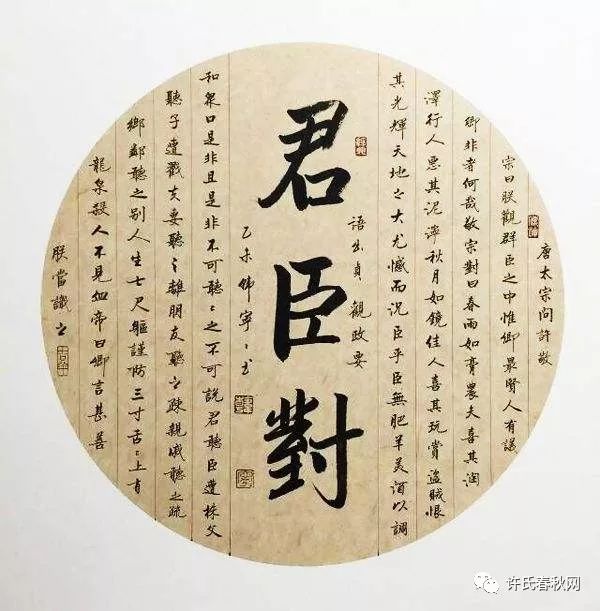 唐太宗問許敬
宗曰朕觀群臣之中惟卿最賢人有議
卿非者何哉敬宗對曰春雨如膏農夫喜其潤
澤行人惡其泥濘秋月如鏡佳人喜其玩賞盜賊恨
其光輝天地之大尤憾而況臣乎臣無肥羊美酒以調
語出貞觀政要
君臣對
乙未偉寧
和衆口是非且是非不可聽〻之不可說君聽臣遭株父
聽子遭戮夫妻聽之離朋友聽之疎親戚聽之疏
鄉鄰聽之別人生七尺軀謹防三寸舌〻上有
龍泉殺人不見血帝曰卿言甚善
朕當識之
许氏春秋网